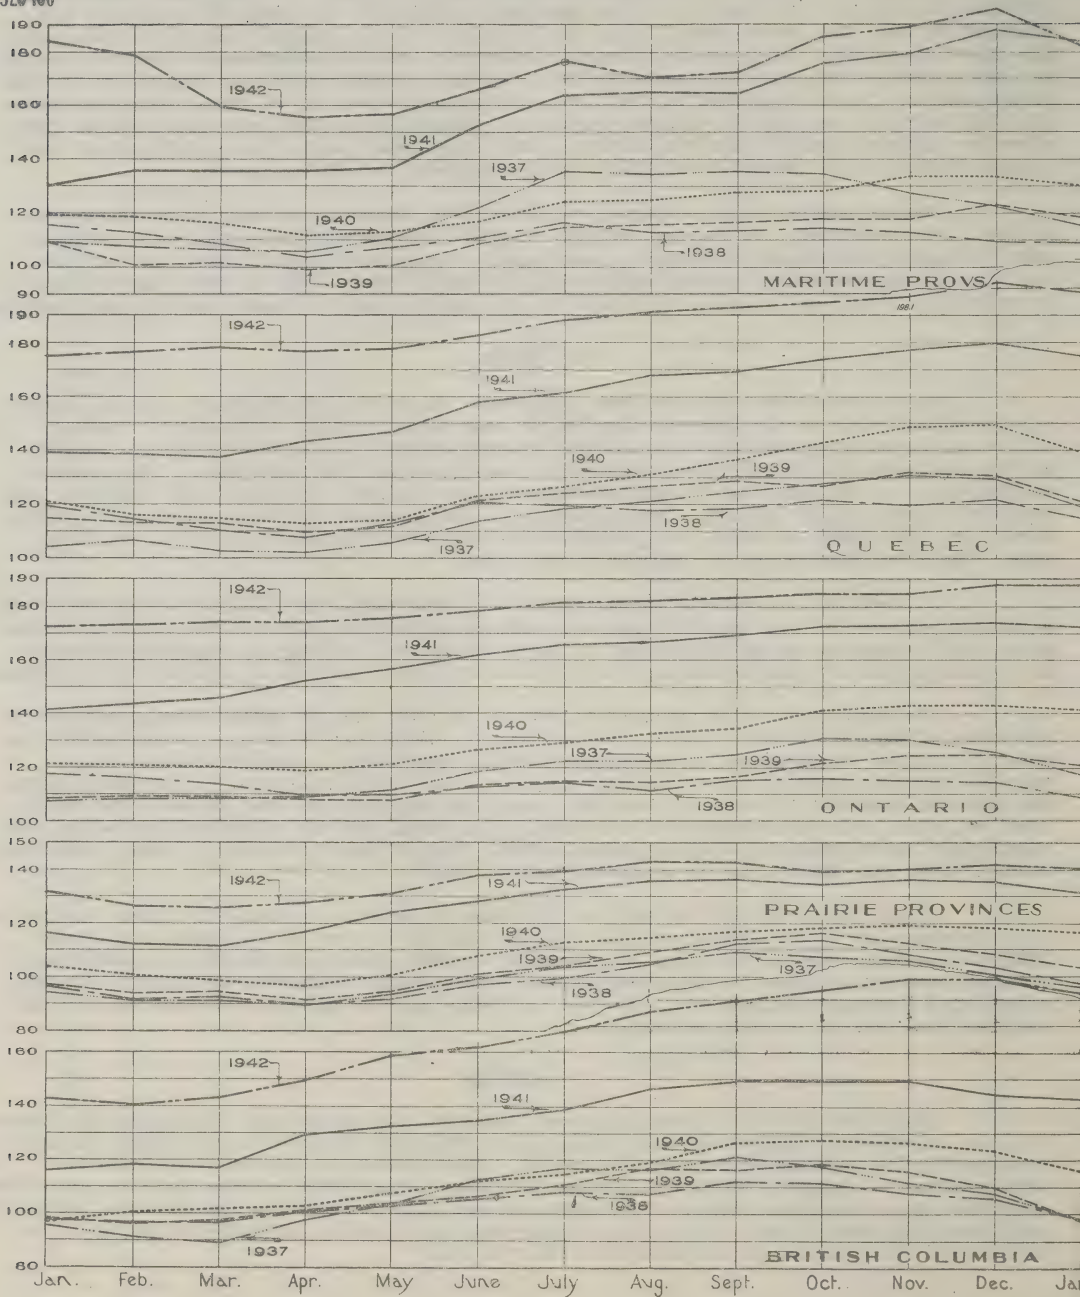 190
180
160
140
120
100
90
1942
1941
1937
1940
1938
1939
MARITIME PROVS
190
180
160
140
120
100
1942
1941
1940
1939
1938
1937
QUEBEC
190
180
160
140
120
100
1942
1941
1940
1937
1939
1938
ONTARIO
150
140
120
100
80
1942
1941
1940
1939
1937
1938
PRAIRIE PROVINCES
160
140
120
100
80
1942
1941
1940
1939
1938
1937
BRITISH COLUMBIA
Jan. Feb. Mar. Apr. May June July Aug. Sept. Oct. Nov. Dec. Jan